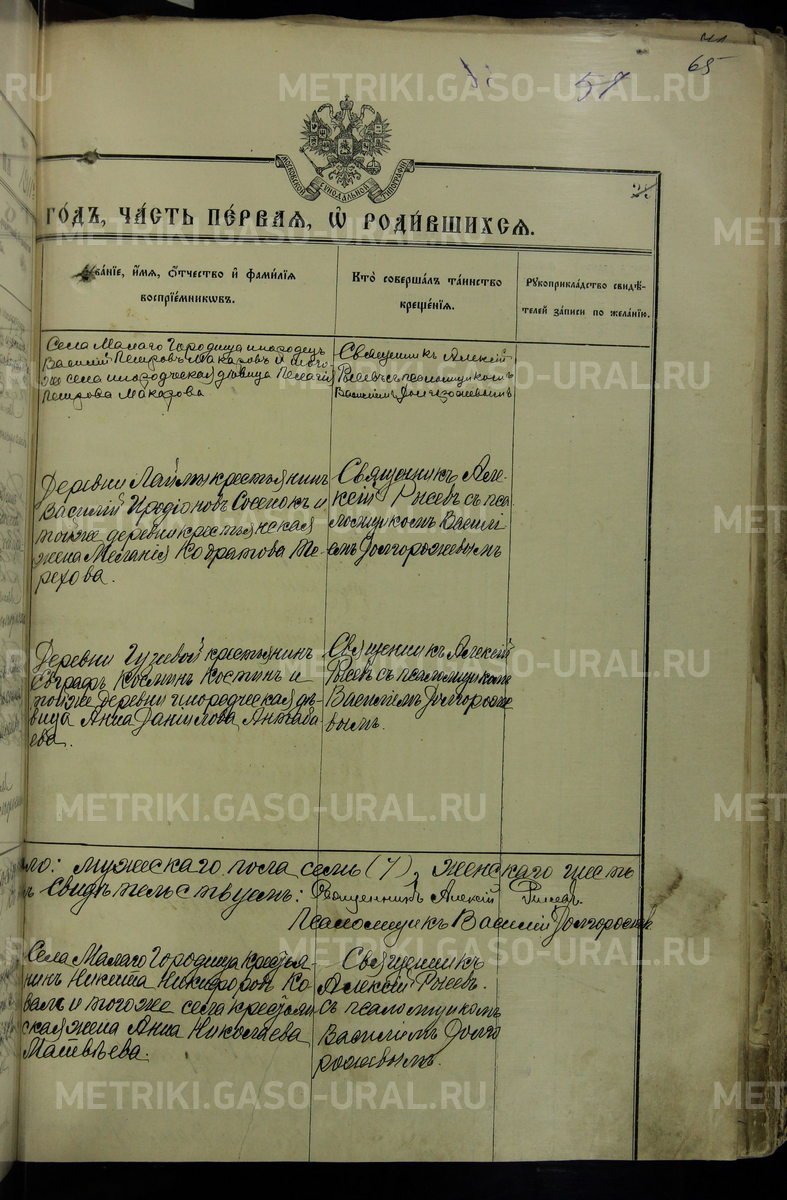 65
57
МОСКОВСКОЙ СѴНОДАЛЬНОЙ ТИПОГРАФІИ
ГО́ДЪ, ЧА́СТЬ ПЕ́РВАѦ, Ѽ РОДИ́ВШИХСѦ.
Зва́ніе, и́мѧ, ѻ҆́тчество и҆ фами́лїѧ
воспрїе́мникѡвъ.
Кто̀ соверша́лъ та́инство
креще́нїѧ.
Рꙋкоприкла́дство свидѣ́-
телей за́писи по жела́нїю.
Села Малаго Городища инородецъ
Василій Петровъ Макаровъ и того
же села инородческая дѣвица Пелагія
Петрова Макарова
Священникъ Алексій
съ псаломщикомъ
Василіемъ
Деревни крестьянинъ
Василій Иродіоновъ Сосенокъ и
тойже деревни крестьянская
жена Меланія Кодратова Те-
рехова.
Священникъ Але-
ксій съ пса-
ломщикомъ Васили-
емъ Долгорожевымъ
Деревни Гузеевой крестьянинъ
Евграфъ Космин Костинъ и
тойже деревни инородческая дѣ-
вица Анна Данилова
Священникъ Алексій
съ псаломщикомъ
Василіемъ Долгороже
вымъ.
ло: мужескаго пола семь (7), женскаго шесть
Свидѣтельствуемъ: Священникъ Алексій
Псаломщикъ Василій
Села Малаго Городища крестья-
нинъ Никита Никифоровъ Ко
валь и тогоже села крестьян
ская жена Анна Николаева
Матвѣева.
Священникъ
Алексій
съ псаломщикомъ
Василіемъ Долго
рожевымъ.
METRIKI.GASO-URAL.RU